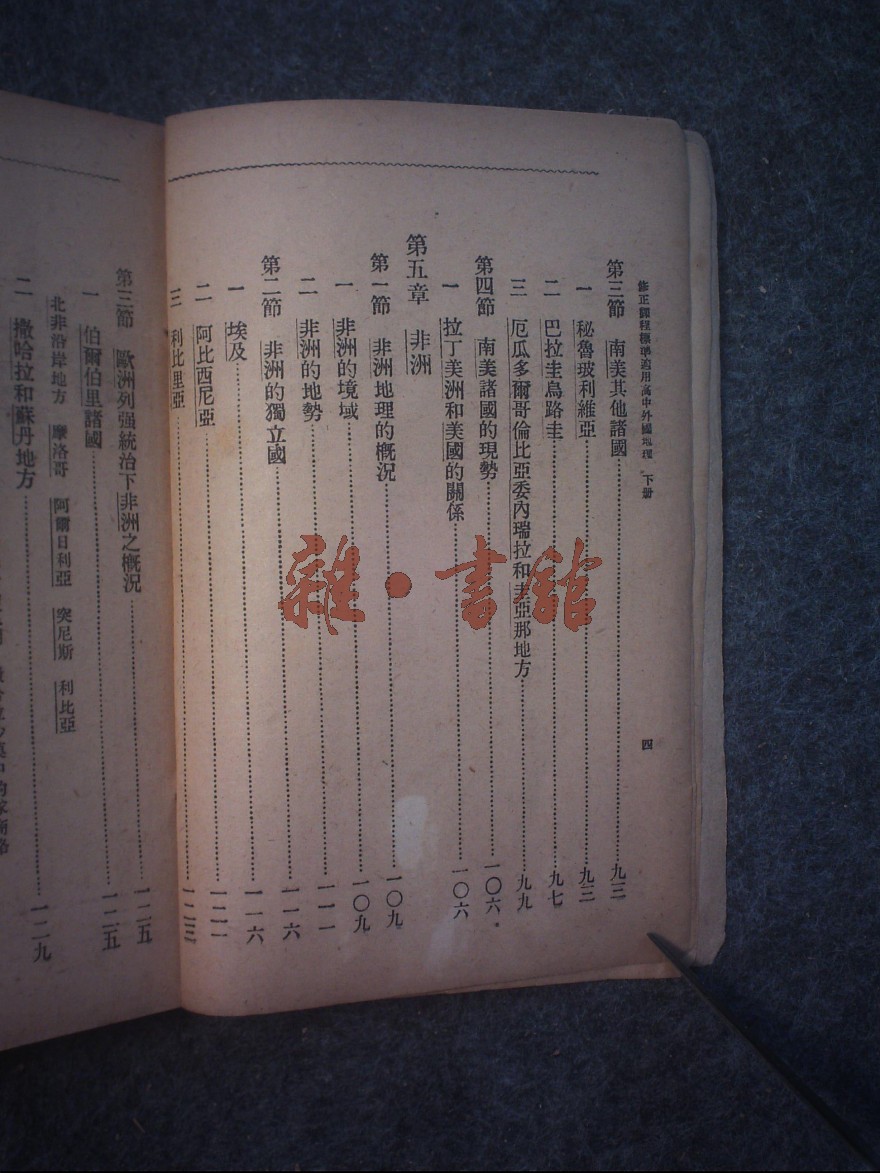 修正課程標準適用高中外國地理 下册
四
第三節 南美其他諸國 九三
一 秘魯玻利維亞 九三
二 巴拉圭烏路圭 九七
三 厄瓜多爾哥倫比亞委內瑞拉和圭亞那地方 九九
第四節 南美諸國的現勢 一〇六
一 拉丁美洲和美國的關係 一〇六
第五章 非洲
第一節 非洲地理的概況 一〇九
一 非洲的境域 一〇九
二 非洲的地勢 一一一
第二節 非洲的獨立國 一一六
一 埃及 一一六
二 阿比西尼亞 一二一
三 利比里亞 一二三
第三節 歐洲列强統治下非洲之概況 一二五
一 伯爾伯里諸國 一二五
北非沿岸地方 摩洛哥 阿爾日利亞 突尼斯 利比亞
二 撒哈拉和蘇丹地方 一二九
雜·書館